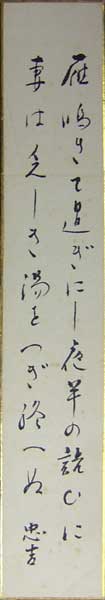 雁鳴きて過ぎにし夜半の読むに
妻は乏しき湯をつぎ終へぬ 忠吉